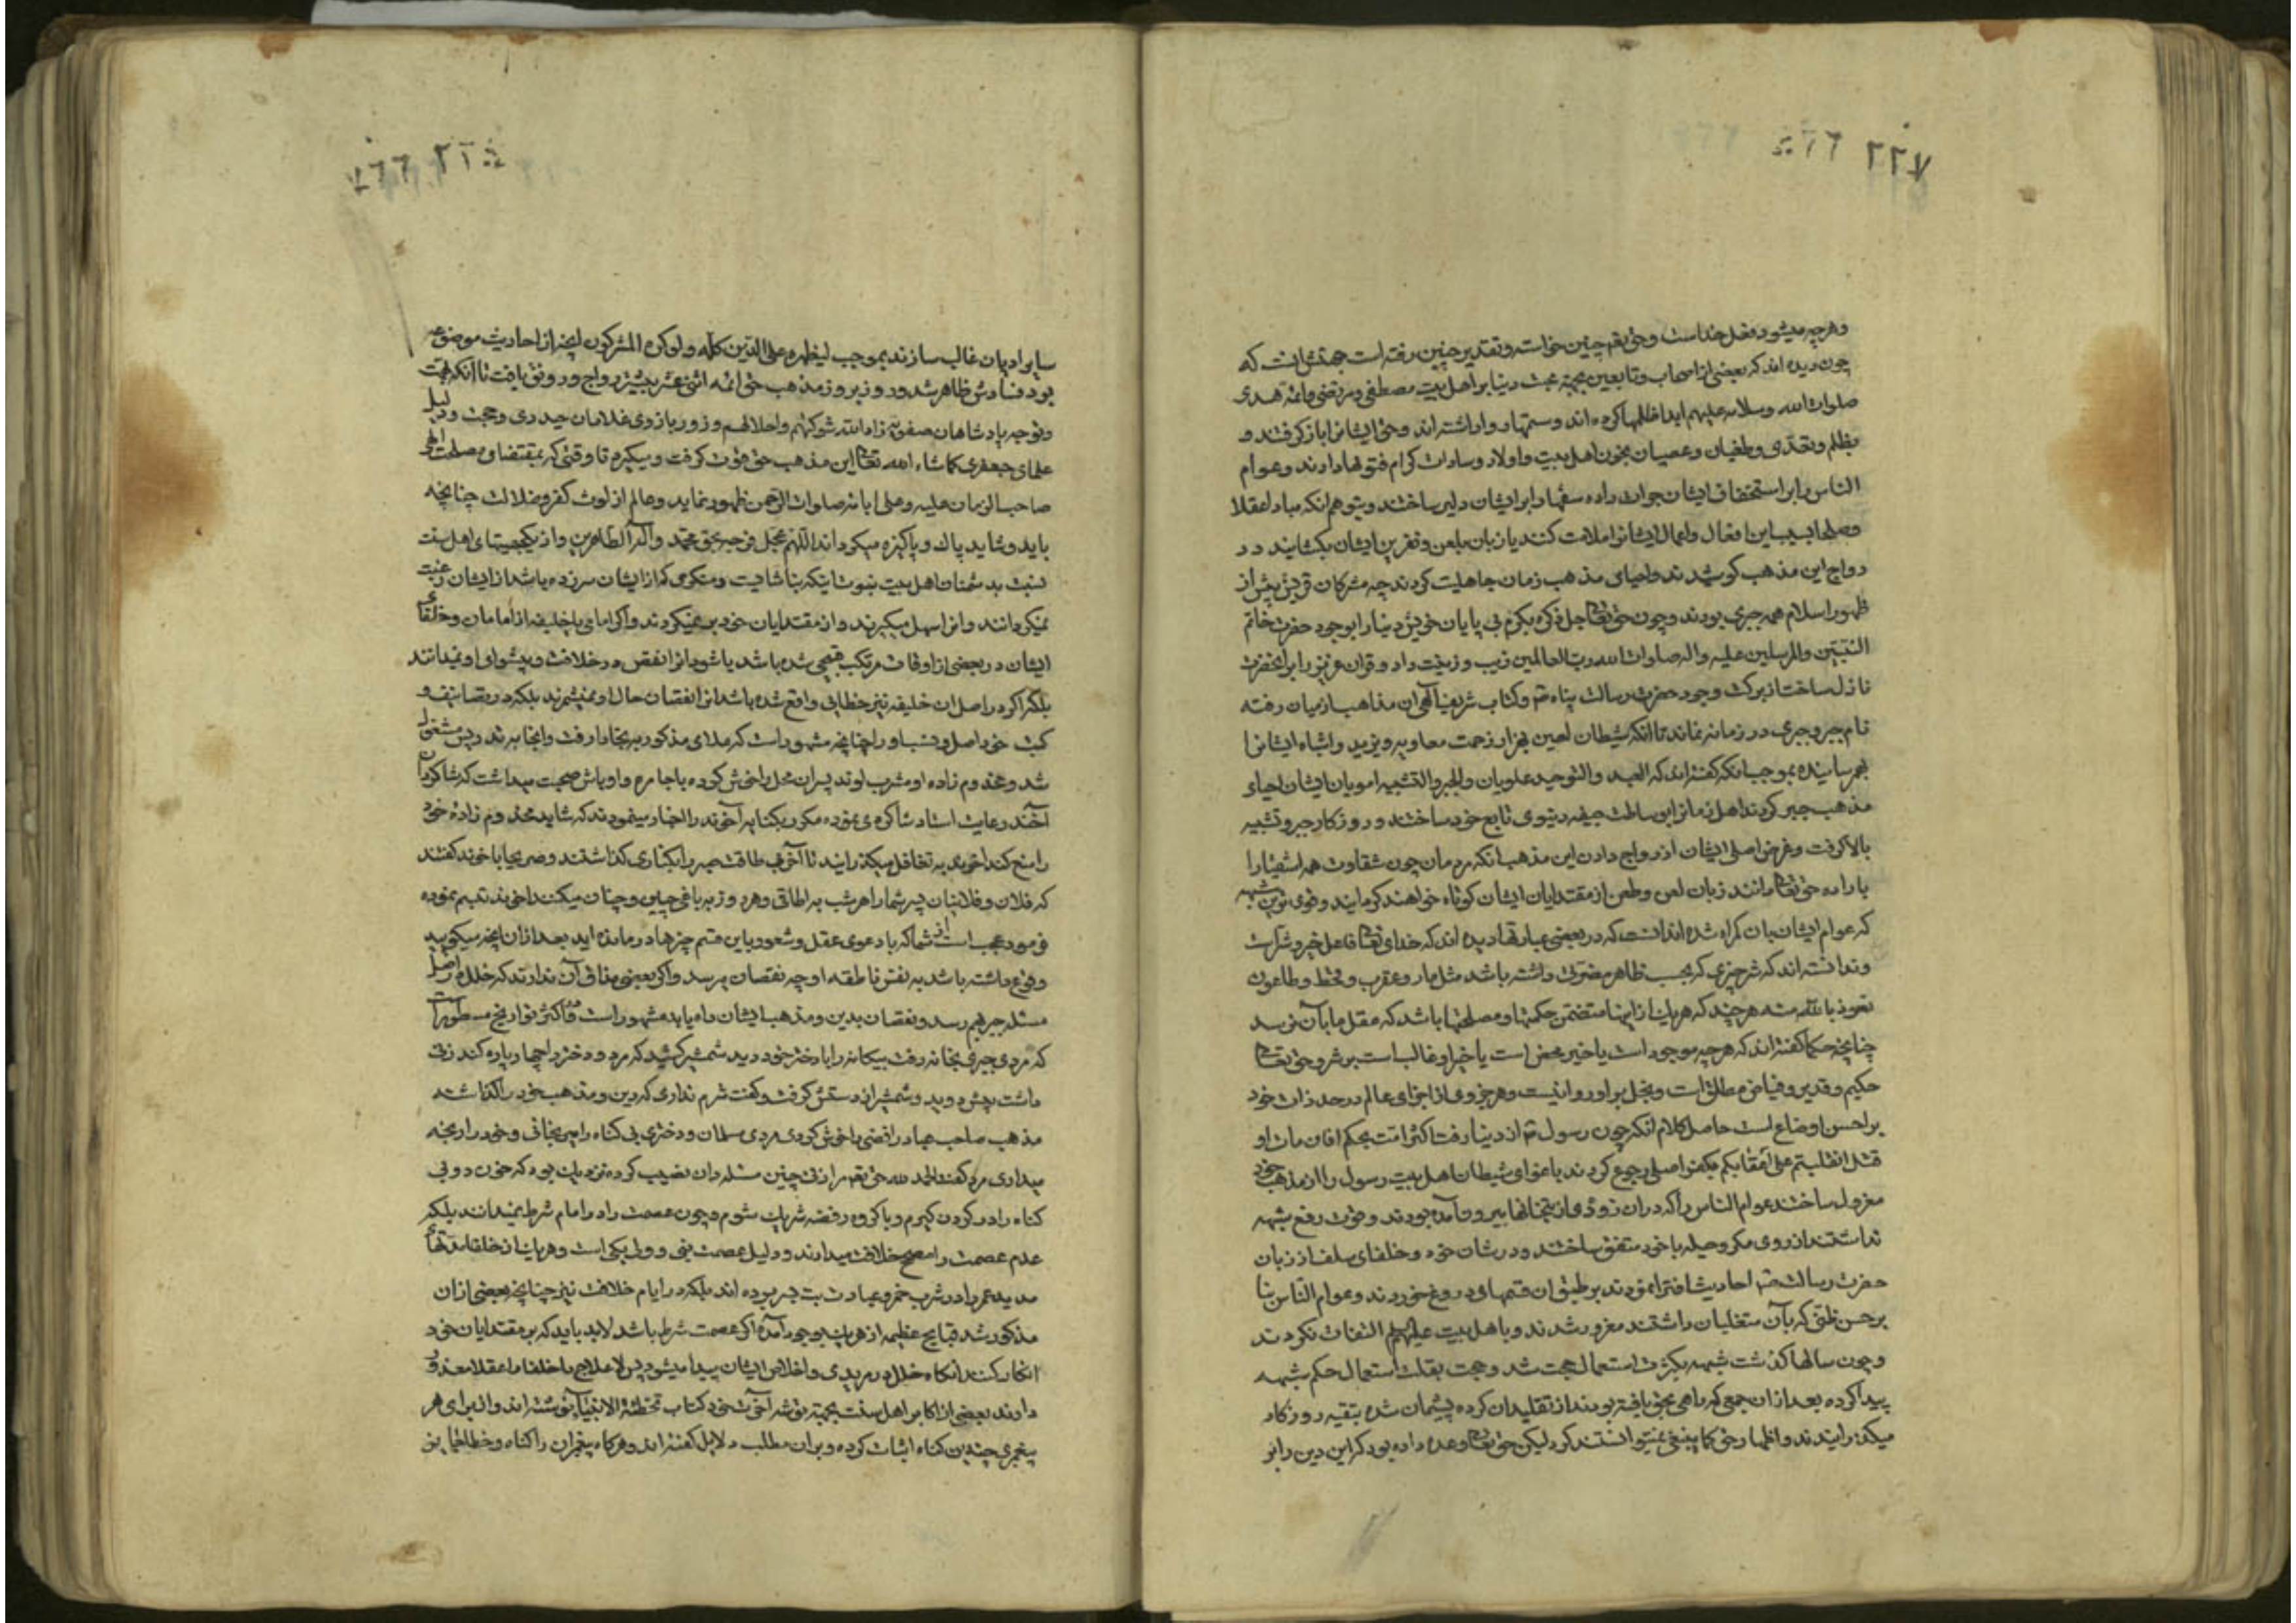 ۲۲۷
وهرچه میشود فعل خداست وحق تعم چنین خواسته و تقدیر چنین رفته است جهتش انست که
چون دیده اند که بعضی از اصحاب وتابعین بجهة محبت دنیا بر اهل بیت مصطفی ومرتضی وائمه هدی
صلوات الله وسلامه علیهم ابدا ظلمها کرده اند وستمها روا داشته اند وحق ایشانرا باز گرفتند و
بظلم وتعدی وطغیان وعصیان بخون اهل بیت واولاد وسادات کرام فتوها دادند وعوام
الناس را بر استخفاف ایشان جرات داده سفها را بر ایشان دلیر ساختند وبتوهم انکه مبادا عقلا
وصلحا بسبب این افعال واعمال ایشانرا ملامت کنند یا زبان بلعن ونفرین ایشان بکشایند در
رواج این مذهب کوشیدند واحیای مذهب زمان جاهلیت کردند چه مشرکان قریش پیش از
ظهور اسلام همه جبری بودند وچون حق تعالی جل ذکره بکرم بی پایان خویش دنیا را بوجود حضرت خاتم
النبیین والمرسلین علیه واله صلوات الله رب العالمین زیب وزینت داد وقران عزیز را بر انحضرت
نازل ساخت از برکت وجود حضرت رسالت پناه ص وکتاب شریف الهی ان مذاهب از میان رفته
نام جبر وجبری در زمانه نماند تا انکه شیطان لعین بهزار زحمت معاویه ویزید واشباه ایشانرا
بهم رسانیده بموجب انکه گفته اند که العدل والتوحید علویان والجبر والتشبیه امویان ایشان احیاء
مذهب جبر کردند اهل زمانرا بوساطت جیفه دنیوی تابع خود ساختند وروزکار جبر وتشبیه
بالا گرفت وغرض اصلی ایشان از رواج دادن این مذهب انکه مردمان چون شقاوت همه اشقیا را
باراده حق تعالی دانند زبان لعن وطعن از مقتدایان ایشان کوتاه خواهند کرد وقوی ترین شبهه
که عوام ایشان بان گمراه شده اند انست که در بعضی عبارتها دیده اند که خدای تعالی فاعل خیر وشر است
وندانسته اند که شر چیزی که بحسب ظاهر مضرتی داشته باشد مثل مار وعقرب وقحط وطاعون
نعوذ بالله منه هر چند که هر یک از اینها متضمن حکمتها ومصلحتها باشد که عقل ما بآن نرسد
چنانچه حکما گفته اند که هرچه موجود است یا خیر محض است یا خیر او غالبست بر شر وحق تعالی
حکیم وقدیر وفیاض مطلق است وبخل بر او روا نیست وهر جزوی از اجزای عالم در حد ذات خود
بر احسن اوضاع است حاصل کلام انکه چون رسول ص از دنیا رفت اکثر امت بحکم افان مات او
قتل انقلبتم علی اعقابکم بکفر اصلی رجوع کردند باغوای شیطان اهل بیت رسول را از مذهب خود
معزول ساختند عوام الناس را که دران زودی از بتخانها بیرون آمده بودند وقوت رفع شبهه
نداشتند از روی مکر وحیله با خود متفق ساختند ودر شان خود وخلفای سلف از زبان
حضرت رسالت ص احادیث افترا نمودند بر طبق ان قسمهای دروغ خوردند وعوام الناس بنا
بر حسن ظنی که بآن متغلبان داشتند مغرور شدند وباهل بیت علیهم التفات نکردند
وچون سالها گذشت شبهه بکثرت استعمال حجت شد وحجت بقلت استعمال حکم شبهه
پیدا کرده بعد از ان جمعی که راهی بحق یافته بودند از تقلید ان کرده پشیمان شده بتقیه روزکار
میگذرانیدند واظهار حق کما ینبغی نمیتوانستند کرد لیکن حق تعالی وعده داده بود که این دین را بر
سایر ادیان غالب سازند بموجب لیظهره علی الدین کله ولو کره المشرکون این از احادیث موضوعه
بود فسادش ظاهر شد وروز بروز مذهب حق ائمه اثنی عشر بیشتر رواج ورونق یافت تا انکه بهمت
وتوجه پادشاهان صفویه زاد الله شوکتهم واجلالهم وزور بازوی غلامان حیدری وحجت ودلیل
علمای جعفری کما شاء الله تعالی این مذهب حق قوت گرفت ومیگیرد تا وقتی که بمقتضای مصلحت الهی
صاحب الزمان علیه وعلی ابائه صلوات الرحمن ظهور نماید وعالم از لوث کفر وضلالت چنانچه
باید وشاید پاک وپاکیزه میگرداند اللهم عجل فرجه بحق محمد وآله الطاهرین واز یکجهتیهای اهل سنت
نسبت بدشمنان اهل بیت نبوت اینکه بناشایست ومنکری که از ایشان سرزده باشد از ایشان رغبت
نمیگردانند وانرا سهل میگیرند واز مقتدایان خود بر نمیگردند واگر امامی یا خلیفه از امامان وخلفاء
ایشان در بعضی از اوقات مرتکب قبیحی شده باشد یا شود انرا نقص در خلافت وپیشوای او نمیدانند
بلکه اگر در اصل ان خلیفه نیز خطایی واقع شده باشد انرا نقصان حال او نمیشمرند بلکه در تصانیف و
کتب خود اصل ونسب او را چنانچه مشهور است که ملای مذکور ببخارا رفت وانجا بدرس مشغول
شد ومخدوم زاده او مشرب لوند پسران محل را خوش کرده با جامره واوباش صحبت میداشت که شاگردان
آخند رعایت استاد شاگردی نموده مکرر بکنایه آخوند را اخبار مینمودند که شاید مخدوم زاده خود
را منع کند اخوند به تغافل میگذرانید تا آخر بی طاقت صبر را بکناری گذاشتند وصریحا باخوند گفتند
که فلان وفلانیان پسر شما را هر شب به اطاقی وهر روز به باغی چنین وچنان میکنند اخوند تبسم نموده
فرمود عجب است از شما که با دعوی عقل وشعور باین قسم چیزها درمانده اید بعد از ان انچه میگویید
وقوع داشته باشد به نفس ناطقه او چه نقصان میرسد واگر بعضی منافی آن ندارند که خلل در اصل
مسئله جبر بهم رسد ونقصان بدین ومذهب ایشان راه یابد مشهور است ودر اکثر تواریخ مسطور است
که مردی جبری بخانه رفت بیگانه را با دختر خود دید شمشیر کشید که مرد ودختر را چهار پاره کند زنی
داشت پیش دوید وشمشیر از دستش گرفت وگفت شرم نداری که دین ومذهب خود را گذاشته
مذهب صاحب عباد رافضی را خوش کردی مردی مسلمان ودختری بی گناه را میرنجانی وخود را رنجه
میداری مرد گفت الحمد لله حق تعم مرا زنی چنین مسئله دان نصیب کرده نزدیک بود که خون دو بی
گناه را در گردن گیرم وبا گروه رفضه شریک شوم وچون عصمت را در امام شرط نمیدانند بلکه
عدم عصمت را مصحح خلافت میدارند ودلیل عصمت نبی وولی یکی است وهر یک از خلفا مدتهاء
مدید عمر را در شرب خمر وعبادت بت بسر برده اند بلکه در ایام خلافت نیز چنانچه بعضی از ان
مذکور شد قبایح عظیمه از هر یک بوجود آمده اگر عصمت شرط باشد لابد باید که بر مقتدایان خود
انکار کنند انگاه خلل در مریدی واخلاص ایشان پیدا میشود پس لاعلاج با خلفا اعتقاد معذور
دارند بعضی از اکابر اهل سنت بجهة توشه آخرت خود کتاب تخطئة الانبیاء نوشته اند واز برای هر
پیغمبری چندین گناه اثبات کرده وبران مطلب دلایل گفته اند وهرگاه پیغمبران را گناه وخطا لغایت